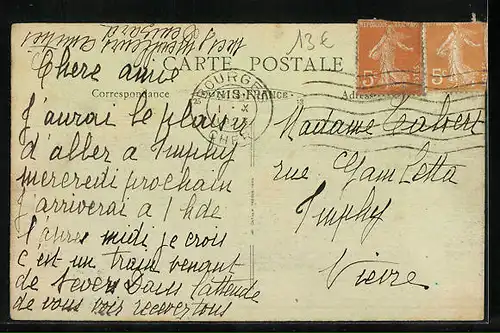 13€
CARTE POSTALE
Correspondance
Adresse
BOURGES
CHER
5 5
Chère amie
J'aurai le plaisir
d'aller a Imphy
mercredi prochain
J'arriverai a 1 h de
l'après midi je crois
c'est un train venant
de Nevers Dans l'attende
de vous voir recevez tous
Madame
rue Gambetta
Imphy
Nievre